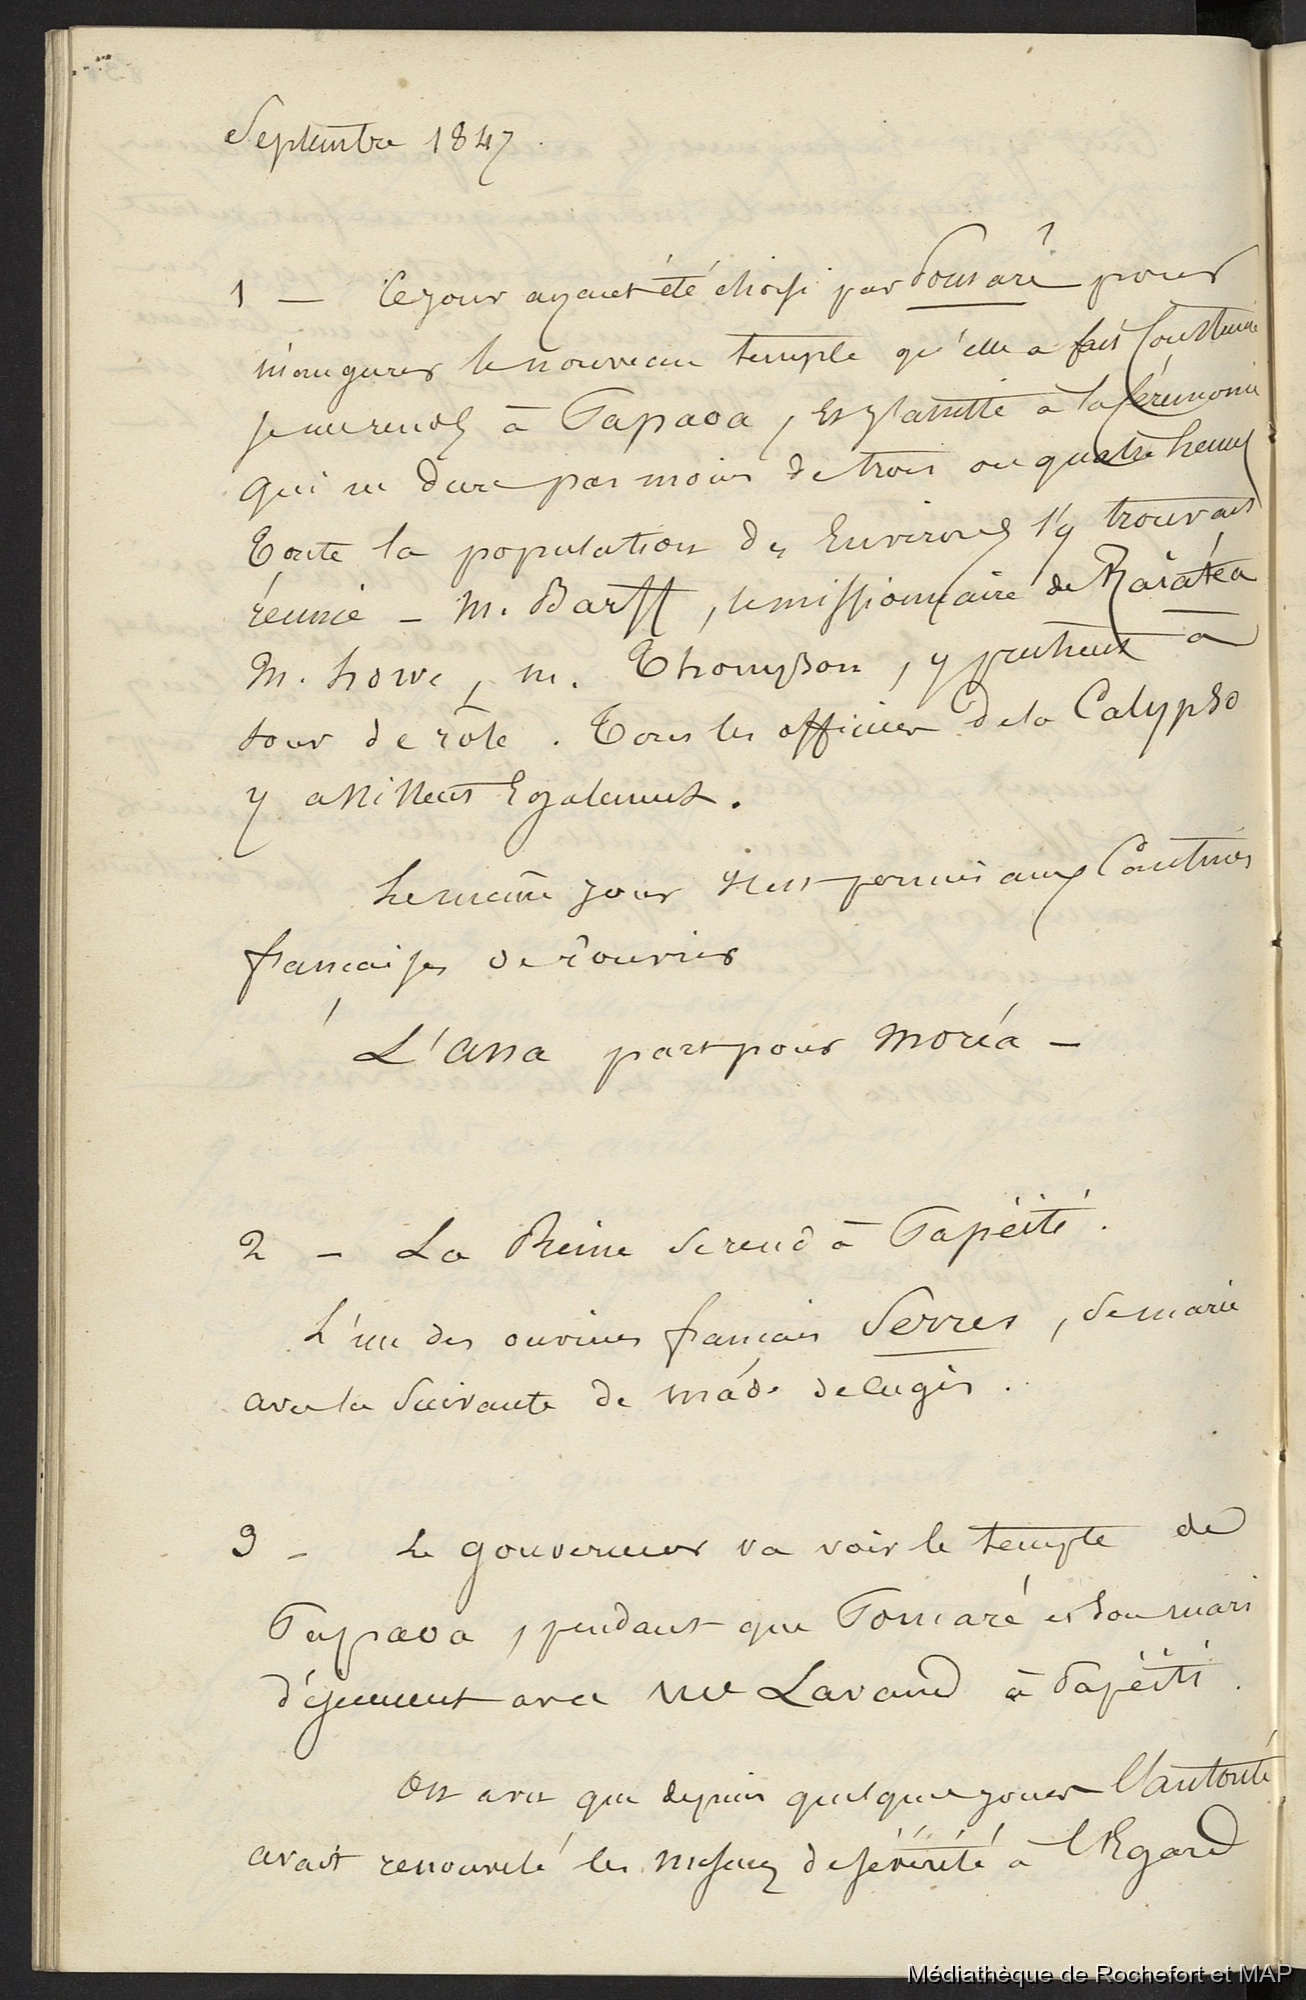 Septembre 1847.
1 — Ce jour ayant été choisi par Pomaré pour
inaugurer le nouveau temple qu'elle a fait Construire
je me rends à Papaoa, et j'assiste à la Cérémonie
qui ne dure pas moins de trois ou quatre heures
Toute la population des Environs s'y trouvait
réunie — M. Barff, le missionnaire de Raiatéa
M. howe, M. Thompson, y prêchent à
tour de rôle. Tous les officiers de la Calypso
y assistent Egalement.
Le même jour il est permis aux Cantines
françaises de rouvrir
L'Ana part pour Moréa —
2 — La Reine se rend à Papéiti.
L'un des ouvriers français Serres, se marie
avec la Suivante de Made de Lugis.
3 — Le gouverneur va voir le temple de
Papaoa, pendant que Pomaré et son mari
déjeunent avec Me Lavaud à Papéiti.
On avu que depuis quelques jours l'autorité
avait renouvelé les mesures de sévérité à l'Egard
Médiathèque de Rochefort et MAP